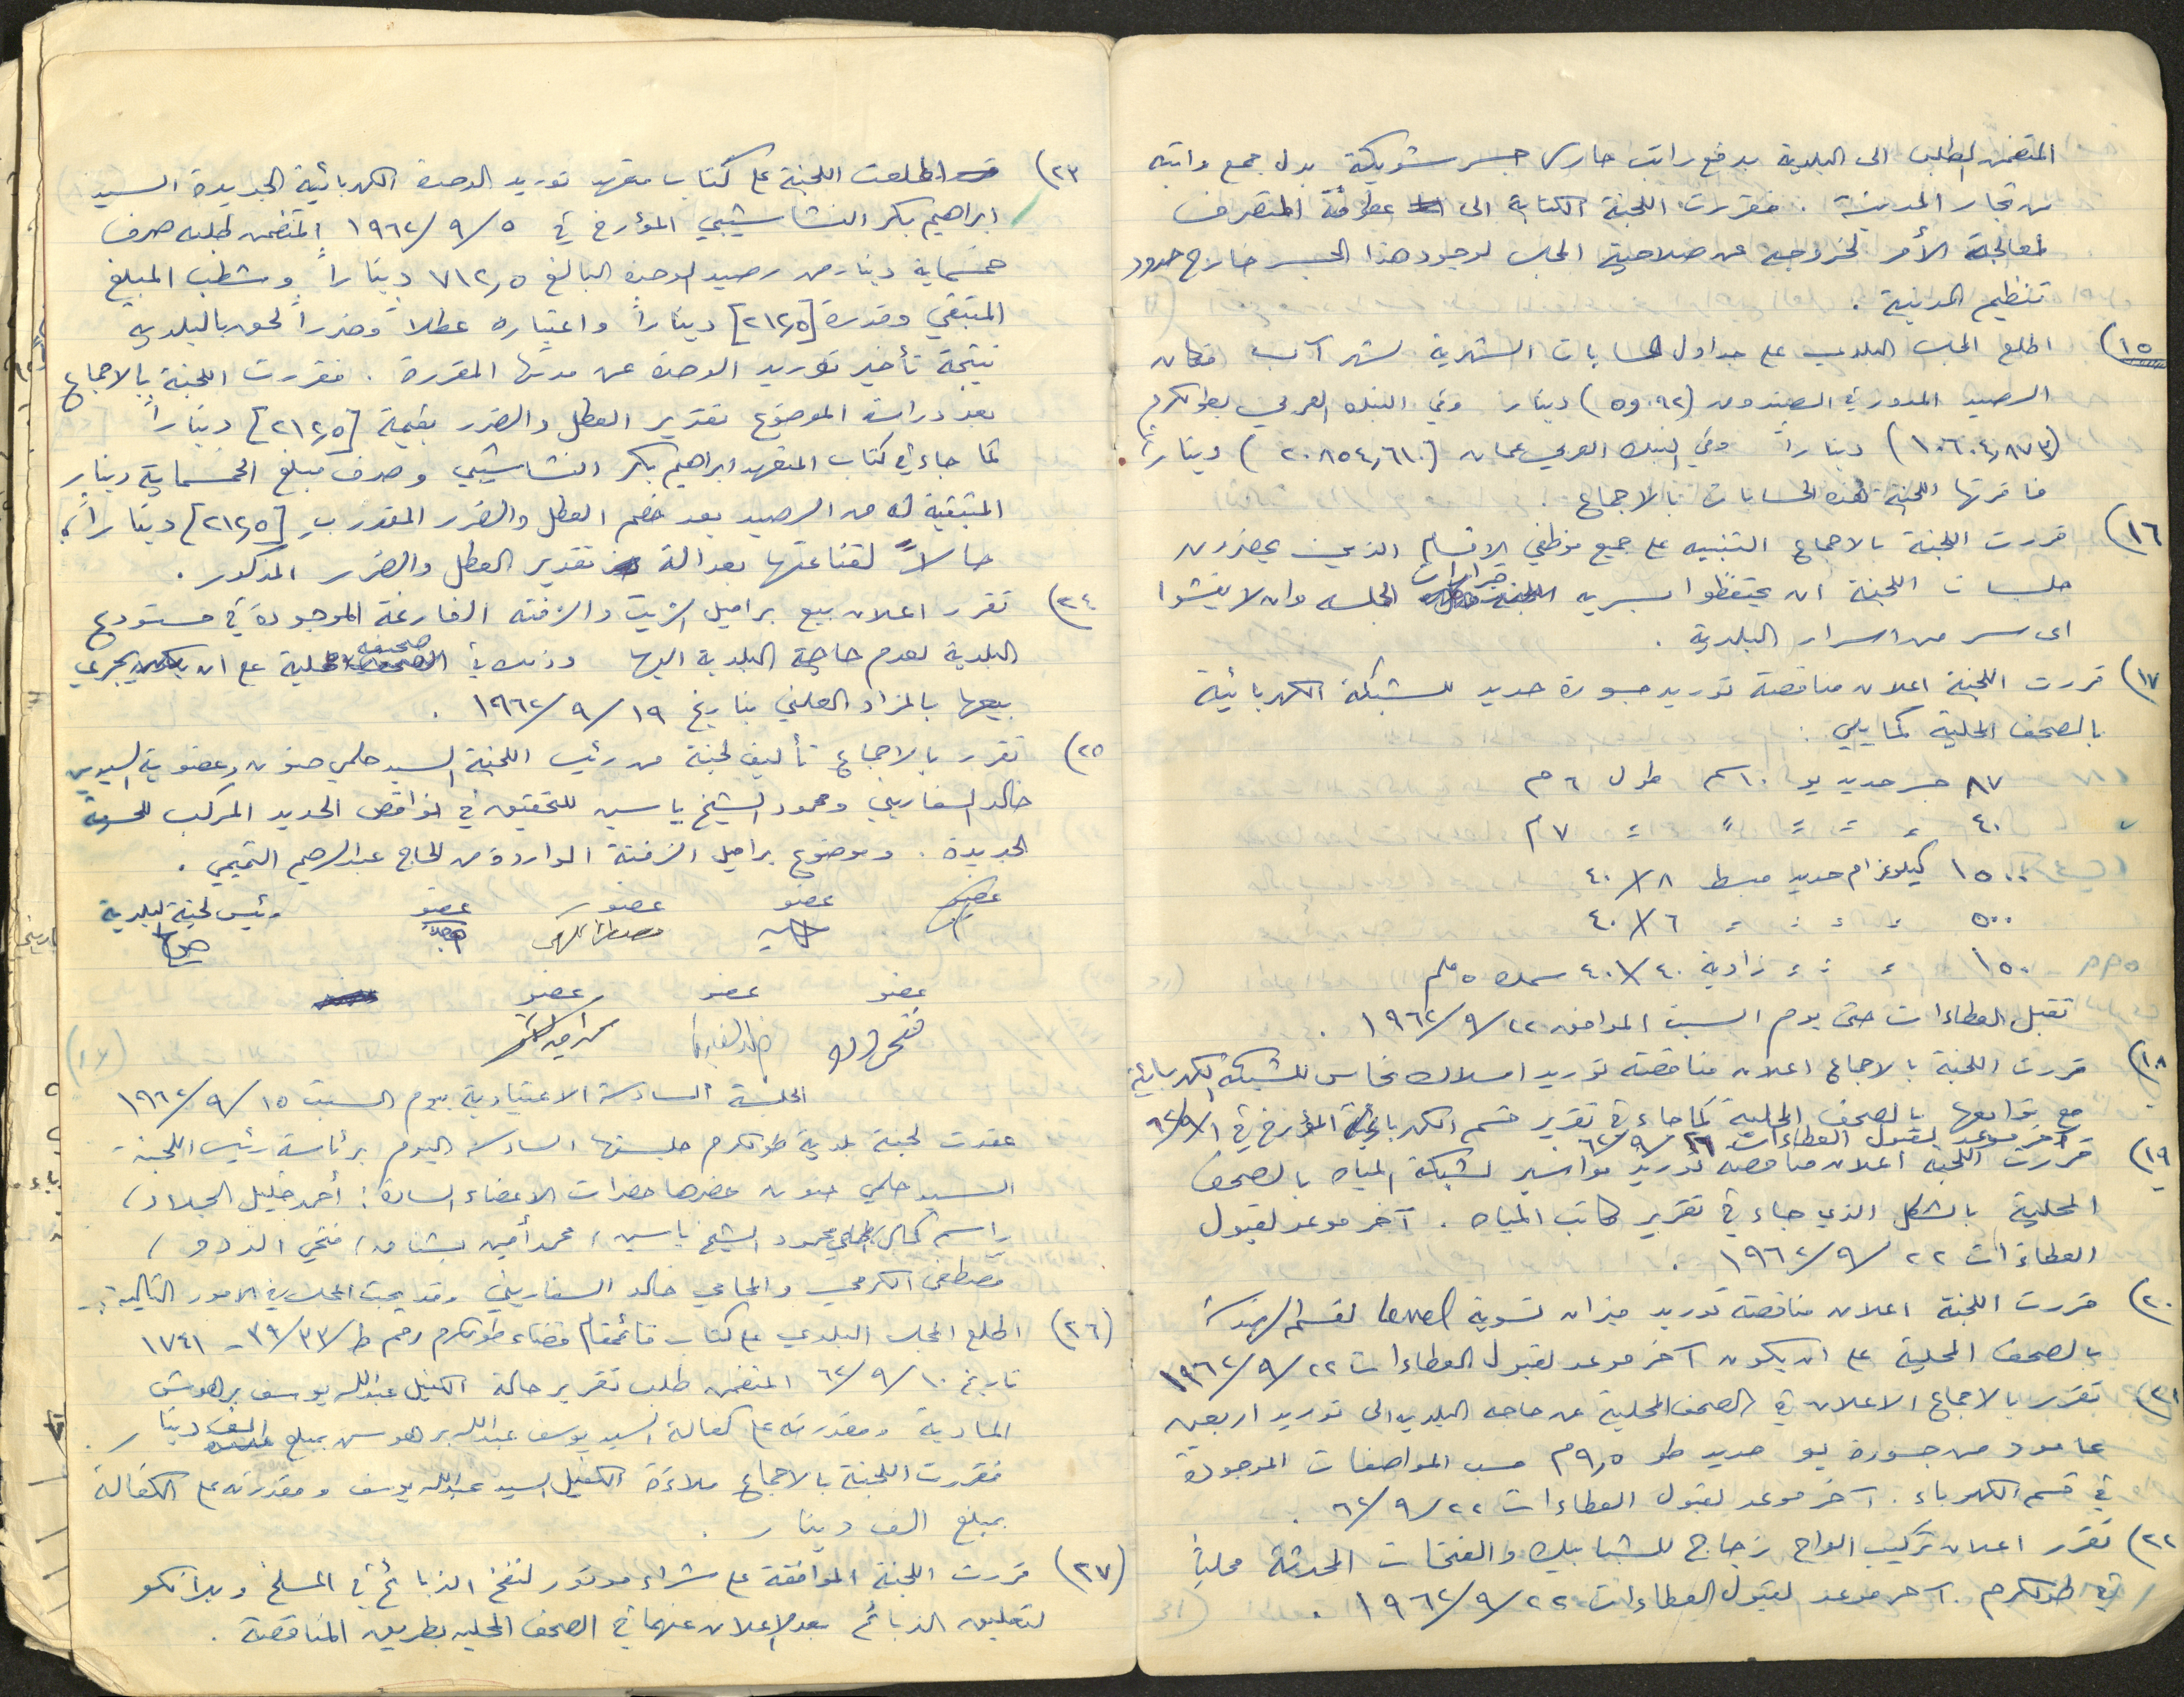 المتضمن الطلب الى البلدية بدفع راتب حارس جسر شويكة بدل جمع راتبه
من تجار المدينة . فقررت اللجنة الكتابة الى عطوفة المتصرف
لمعالجة الأمر لخروجه عن صلاحية المجلس لوجود هذا الجسر خارج حدود
تنظيم المدينة .
١٥) اطلع المجلس البلدي على جداول الحسابات الشهرية لشهر آب فكان
الرصيد المدور في الصندوق (٥٩٠٩٢) دينار وفي البنك العربي بطولكرم
(١٠٦٠٤,٨٧٣) ديناراً وفي البنك العربي عمان (٢٠٨٥٤,٦١٠) ديناراً
فاقرتها اللجنة هذه الحسابات بالاجماع .
١٦) قررت اللجنة بالاجماع التنبيه على جميع موظفي الاقسام الذين يحضرون
جلسات اللجنة ان يحتفظوا بسرية قرارات الجلسه وان لا يفشوا
اى سر من اسرار البلدية .
١٧) قررت اللجنة اعلان مناقصة توريد جسورة حديد للشبكة الكهربائية
بالصحف المحلية كما يلي :
٨٧ جسر حديد يو ١٠سم طول ٦ م
٤٠ = = = = = ٧ م
١٥٠٠ كيلوغرام حديد مبسط ٨ × ٤٠
٥٠٠ = = = = ٦ × ٤٠
١٥٠ = = = زاوية ٤٠ × ٤٠ سمك ٥ ملم
تقبل العطاءات حتى يوم السبت الموافق ٢٢/٩/١٩٦٢ .
١٨) قررت اللجنة بالاجماع اعلان مناقصة توريد اسلاك نحاس للشبكة الكهربائية
مع توابعها بالصحف المحلية كما جاء في تقرير قسم الكهرباء المؤرخ في
آخر موعد لقبول العطاءات ٢٢/٩/٦٢
١٩) قررت اللجنة اعلان مناقصة توريد مواسير لشبكة المياه بالصحف
المحلية بالشكل الذي جاء في تقرير كاتب المياه . آخر موعد لقبول
العطاءات ٢٢/٩/١٩٦٢ .
٢٠) قررت اللجنة اعلان مناقصة توريد ميزان تسوية level لقسم الهندسة
بالصحف المحلية على ان يكون آخر موعد لقبول العطاءات ٢٢/٩/١٩٦٢
٢١) تقرر بالاجماع الاعلان في الصحف المحلية عن حاجة البلدية الى توريد اربعين
عامود من جسورة يو حديد طو ٩,٥م حسب المواصفات الموجودة
في قسم الكهرباء . آخر موعد لقبول العطاءات ٢٢/٩/٦٢ .
٢٢) تقرر اعلان تركيب الواح زجاج للشبابيك والفتحات المحدثة محلياً
في طولكرم . آخر موعد لقبول العطاءات ٢٢/٩/١٩٦٢ .
٢٣) اطلعت اللجنة على كتاب متعهد توريد الوحدة الكهربائية الجديدة السيد
ابراهيم بكر النشاشيبي المؤرخ في ٥/٩/١٩٦٢ المتضمن طلبه صرف
خمسماية دينار من رصيد الوحدة البالغ ٧١٢,٥ ديناراً وشطب المبلغ
المتبقي وقدره [٢١٢,٥] ديناراً واعتباره عطلاً وضرراً لحق بالبلدية
نتيجة تأخير توريد الوحدة عن مدتها المقررة . فقررت اللجنة بالاجماع
بعد دراسة الموضوع تقدير العطل والضرر بقيمة [٢١٢,٥] ديناراً
كما جاء في كتاب المتعهد ابراهيم بكر النشاشيبي وصرف مبلغ الخمسماية دينار
المتبقية له من الرصيد بعد خصم العطل والضرر المقدر بـ [٢١٢,٥] ديناراً
حالاً لقناعتها بعدالة تقدير العطل والضرر المذكور .
٢٤) تقرر اعلان بيع براميل الزيت والزفته الفارغة الموجودة في مستودع
البلدية لعدم حاجة البلدية اليها وذلك في صحيفه محلية على ان يجري
بيعها بالمزاد العلني بتاريخ ١٩/٩/١٩٦٢ .
٢٥) تقرر بالاجماع تأليف لجنة من رئيس اللجنة السيد حلمي حنون وعضوية السيدين
خالد السفاريني ومحمود الشيخ ياسين للتحقيق في نواقص الحديد المركب للحسبة
الجديدة . وموضوع براميل الزفتة الواردة من الحاج عبدالرحيم التميمي .
عضو عضو عضو عضو رئيس لجنة البلدية
عضو عضو عضو
الجلسة السادسة الاعتيادية يوم السبت ١٥/٩/١٩٦٢
عقدت لجنة بلدية طولكرم جلستها السادسة اليوم برئاسة رئيس اللجنة
السيد حلمي حنون حضرها حضرات الاعضاء السادة : أحمد خليل الجلاد ،
راسم كمال ، محمود الشيخ ياسين ، محمد أمين بشناق ، فتحي الددو ،
مصطفى الكرمي والمحامي خالد السفاريني وقد بحث المجلس في الامور التالية :-
٢٦) اطلع المجلس البلدي على كتاب قائمقام قضاء طولكرم رقم ط/٣٣/٣٩ - ١٧٤١
تاريخ ١٠/٩/٦٢ المتضمن طلب تقرير حالة الكفيل عبدالله يوسف برهوش
المادية ومقدرته على كفالة السيد يوسف عبدالله برهوش بمبلغ الف دينار .
فقررت اللجنة بالاجماع ملاءة الكفيل السيد عبدالله يوسف ومقدرته على الكفالة
بمبلغ الف دينار .
٢٧) قررت اللجنة الموافقة على شراء موتور لنفخ الذبائح في المسلخ وبلانكو
لتعليق الذبائح بعد الاعلان عنهما في الصحف المحليه بطريق المناقصة .